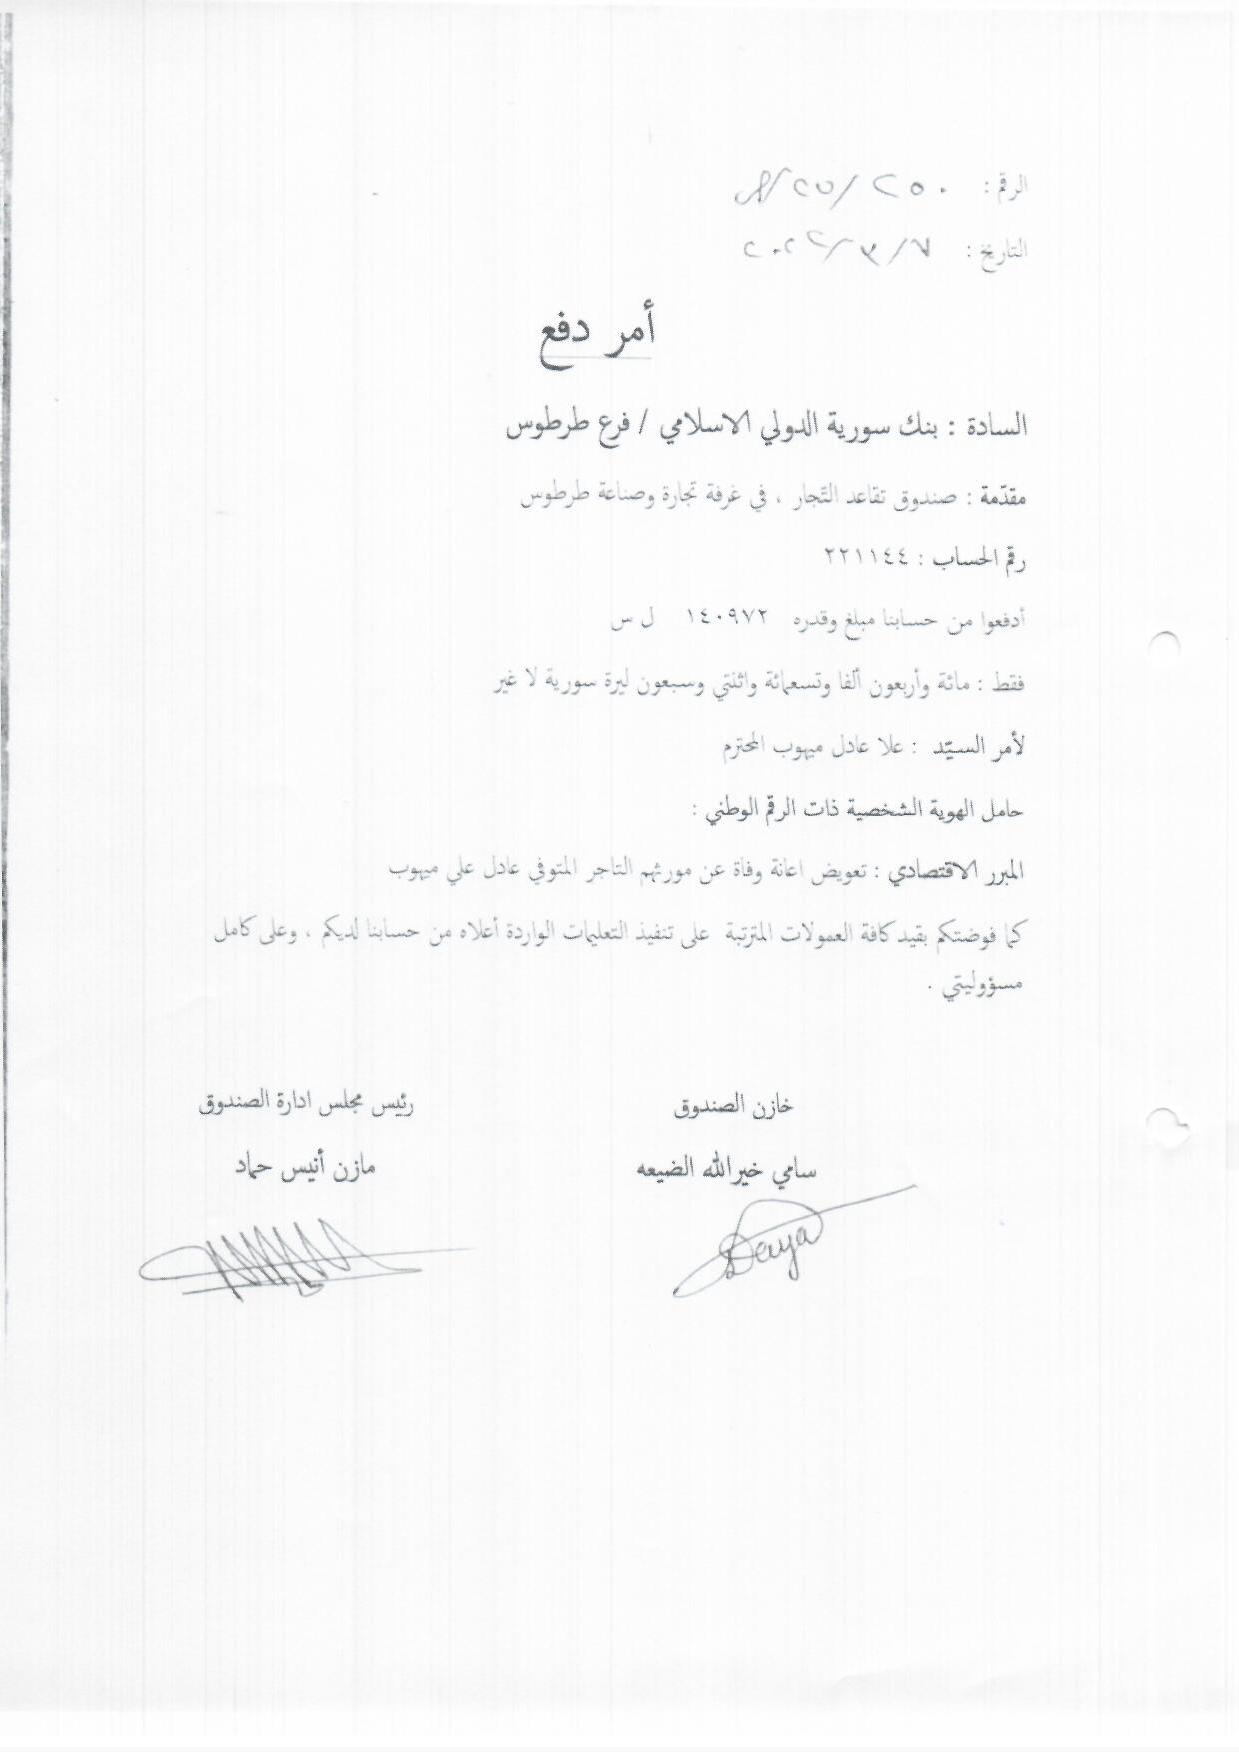 الرقم : ٢٥٠ /
التاريخ : ٧ / ٣ / ٢٠٢٢
أمر دفع
السادة : بنك سورية الدولي الاسلامي / فرع طرطوس
مقدّمة : صندوق تقاعد التّجار ، في غرفة تجارة وصناعة طرطوس
رقم الحساب : ٢٢١١٤٤
أدفعوا من حسابنا مبلغ وقدره ١٤٠٩٧٢ ل س
فقط : مائة وأربعون ألفا وتسعمائة واثنتي وسبعون ليرة سورية لا غير
لأمر السيّد : علا عادل ميهوب المحترم
حامل الهوية الشخصية ذات الرقم الوطني :
المبرر الاقتصادي : تعويض اعانة وفاة عن مورثهم التاجر المتوفي عادل علي ميهوب
كما فوضتكم بقيد كافة العمولات المترتبة على تنفيذ التعليمات الواردة أعلاه من حسابنا لديكم ، وعلى كامل
مسؤوليتي .
خازن الصندوق رئيس مجلس ادارة الصندوق
سامي خيرالله الضيعه مازن أنيس حماد
Daya